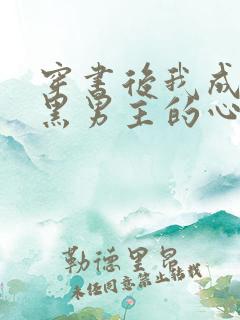 穿书后我成
黑男主的心
勒德里昂
未经同意禁止转载